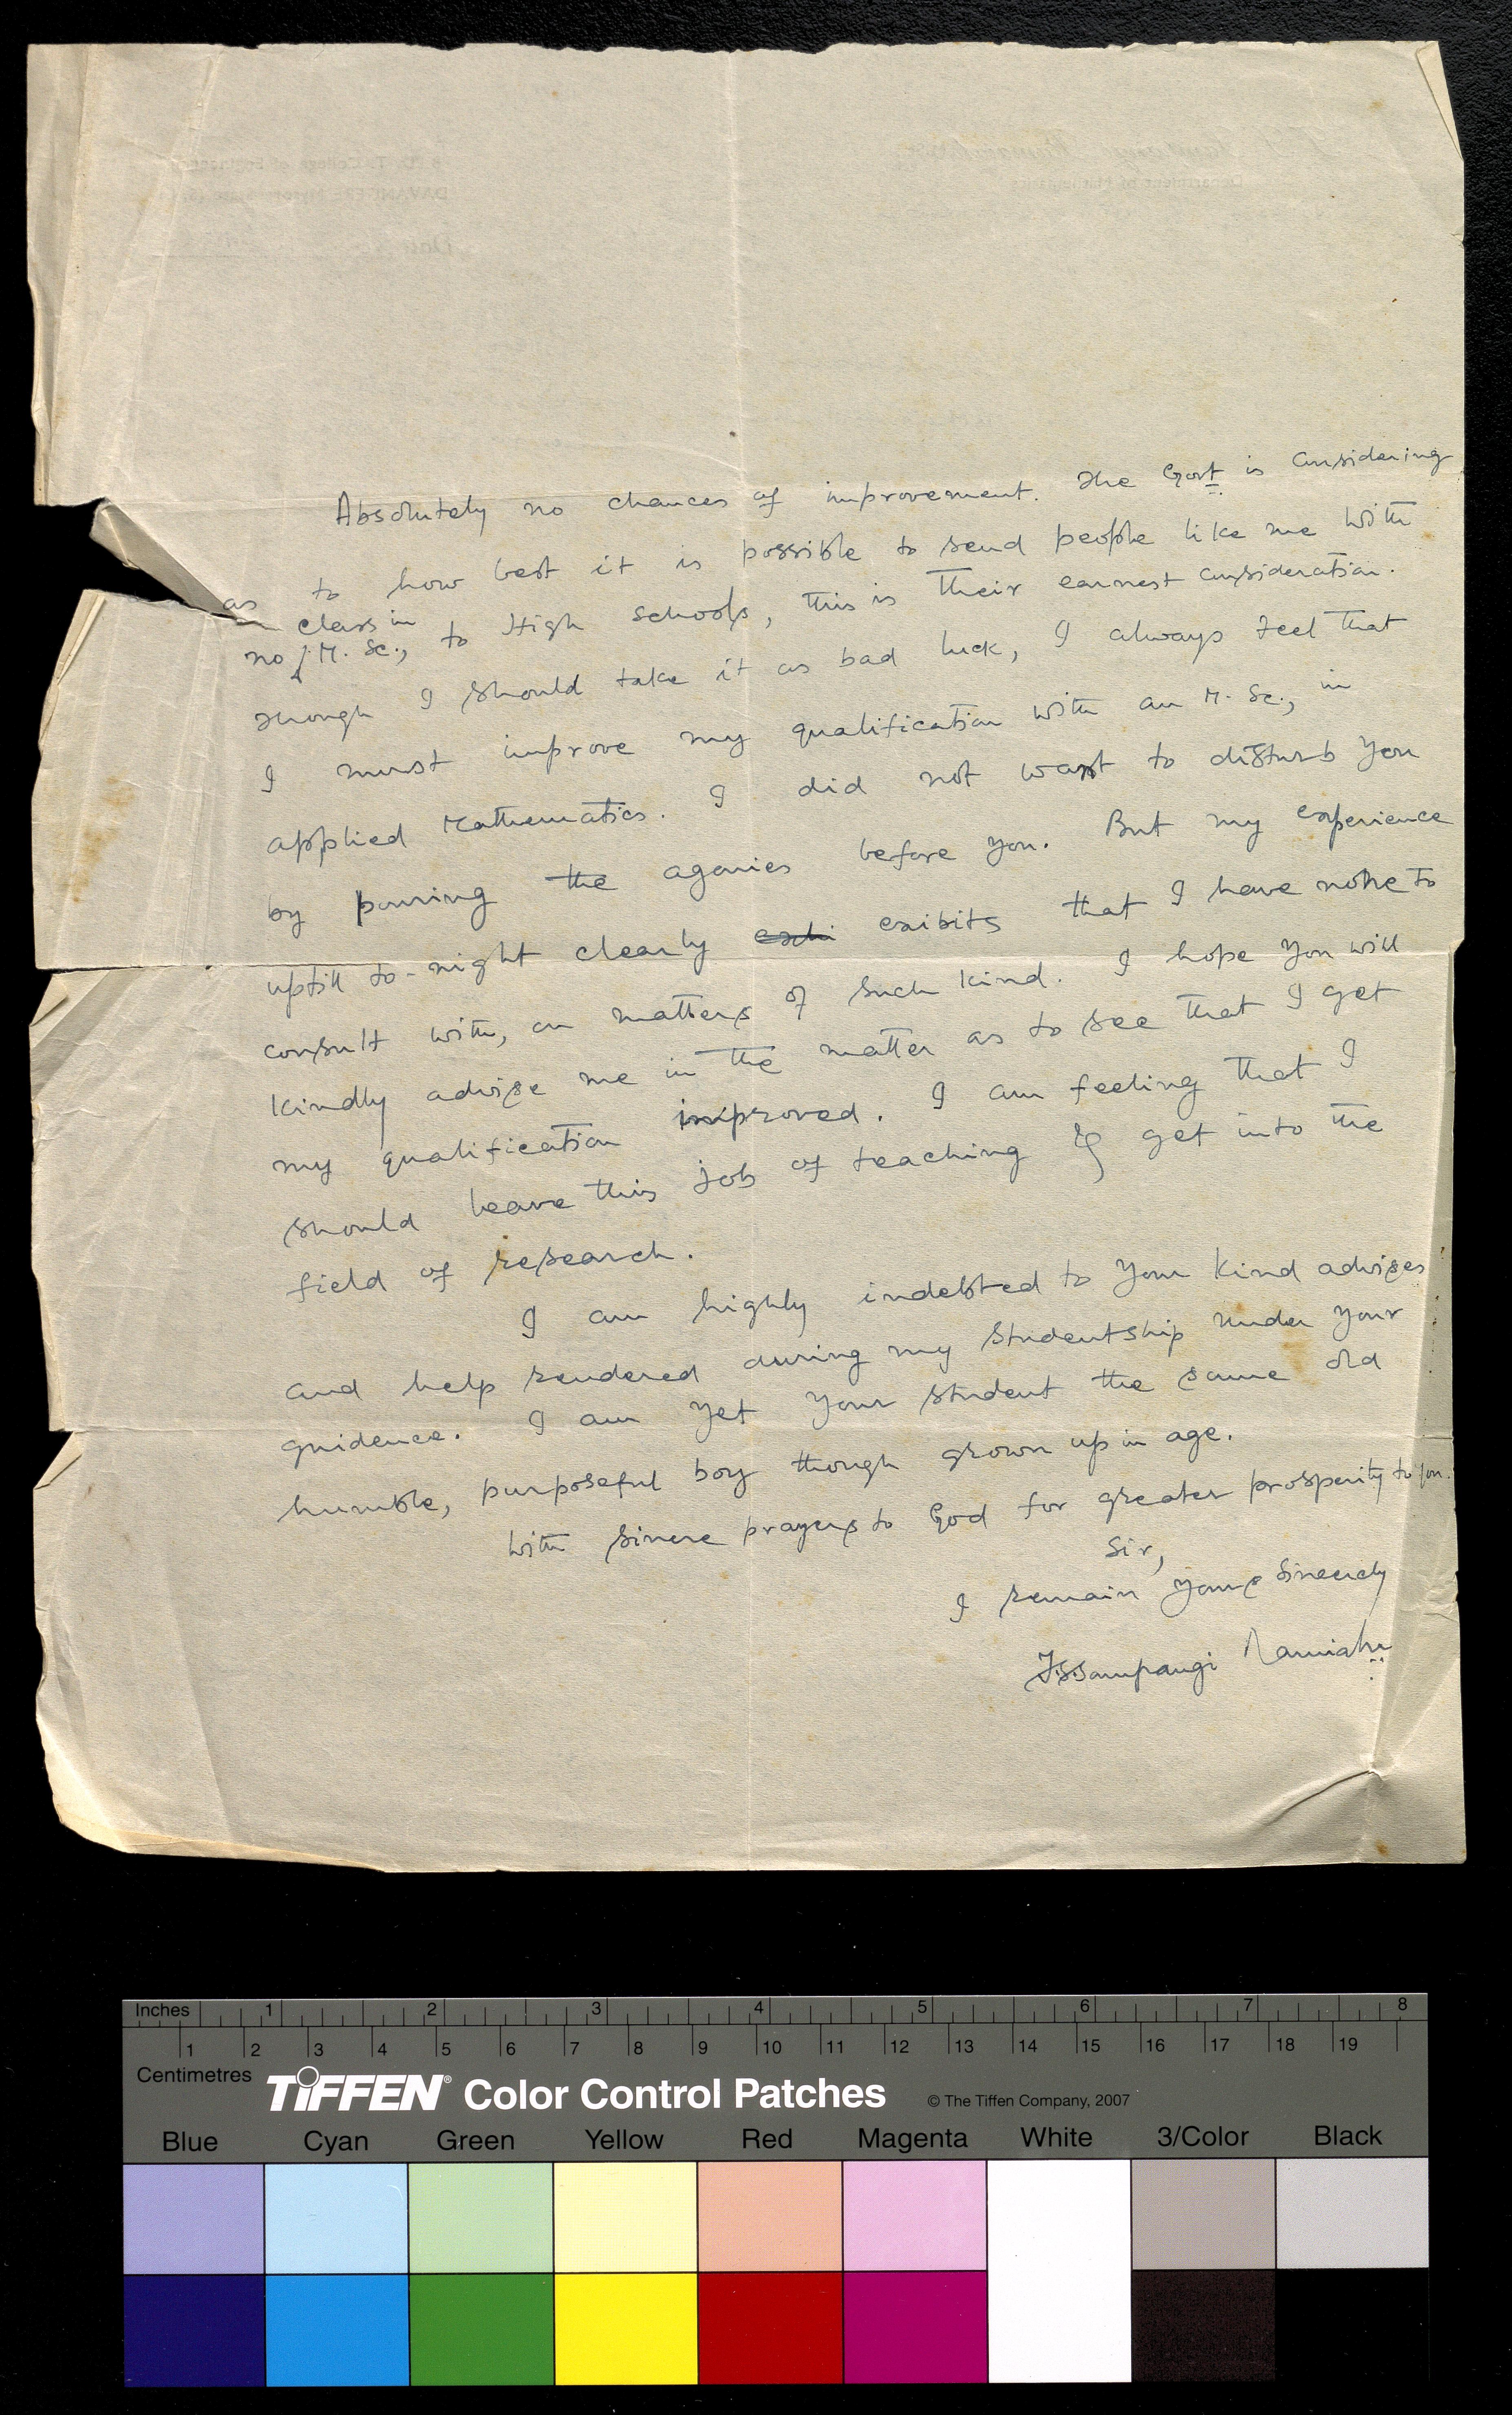 Absolutely no chances of improvement. The Govt is considering
as to how best it is possible to send people like me with
class in
no M. Sc., to High schools, this is their earnest consideration.
Though I should take it as bad luck, I always feel that
I must improve my qualification with an M. Sc., in
applied Mathematics. I did not want to disturb you
by pouring the agonies before you. But my experience
uptill to-night clearly exhi exibits that I have none to
consult with, on matters of such kind. I hope you will
kindly advise me in the matter as to see that I get
my qualification improved. I am feeling that I
should leave this job of teaching & get into the
field of research.
I am highly indebted to your kind advises
and help rendered during my studentship under your
guidence. I am yet your student the same old
humble, purposeful boy though grown up in age.
With sinere prayers to God for greater prosperity to you.
Sir,
I remain yours sincerely
Ramiah
Inches 1 2 3 4 5 6 7 8
1 2 3 4 5 6 7 8 9 10 11 12 13 14 15 16 17 18 19
Centimetres
TIFFEN® Color Control Patches © The Tiffen Company, 2007
Blue Cyan Green Yellow Red Magenta White 3/Color Black